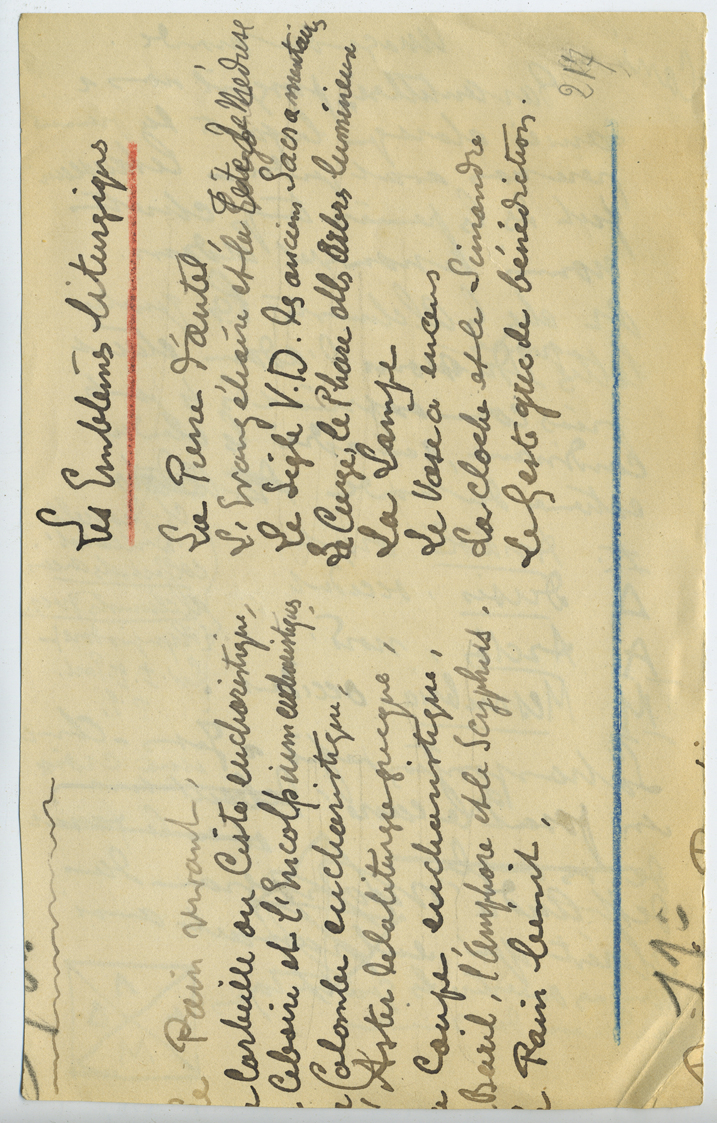 Les Emblèmes liturgiques
La Pierre d'autel
L'Evangéliaire et la Tête de Meduse
Le Sigle V.D. des anciens Sacramentaires
Le Cierge, le Phare et les Arbres lumineux
La Lampe
Le Vase à encens
La Cloche et le Simandre
Le Geste grec de bénédiction.
214
e Pain vivant,
a Corbeille ou Ciste eucharistique,
Ciboire et l'Encolpium eucharistique,
a Colombe eucharistique,
Aster de la liturgie grecque,
a Coupe eucharistique,
Baril, l'Amphore et le Scyphus,
Pain bénit,